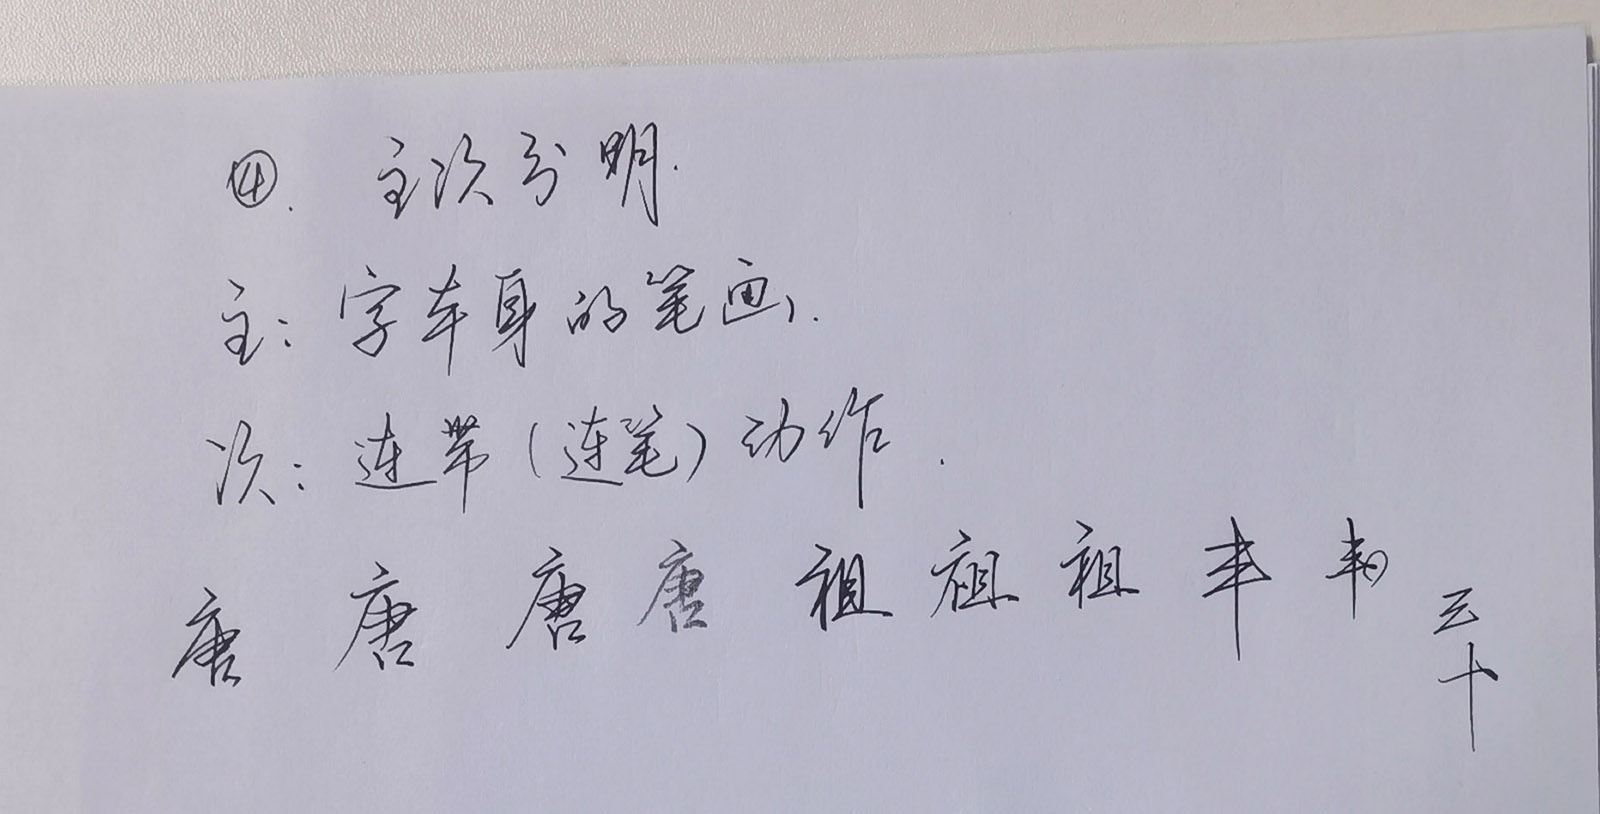 ④. 主次分明.
主：字本身的笔画.
次：连带（连笔）动作.
唐 唐 唐 唐 祖 祖 祖 丰
三
十